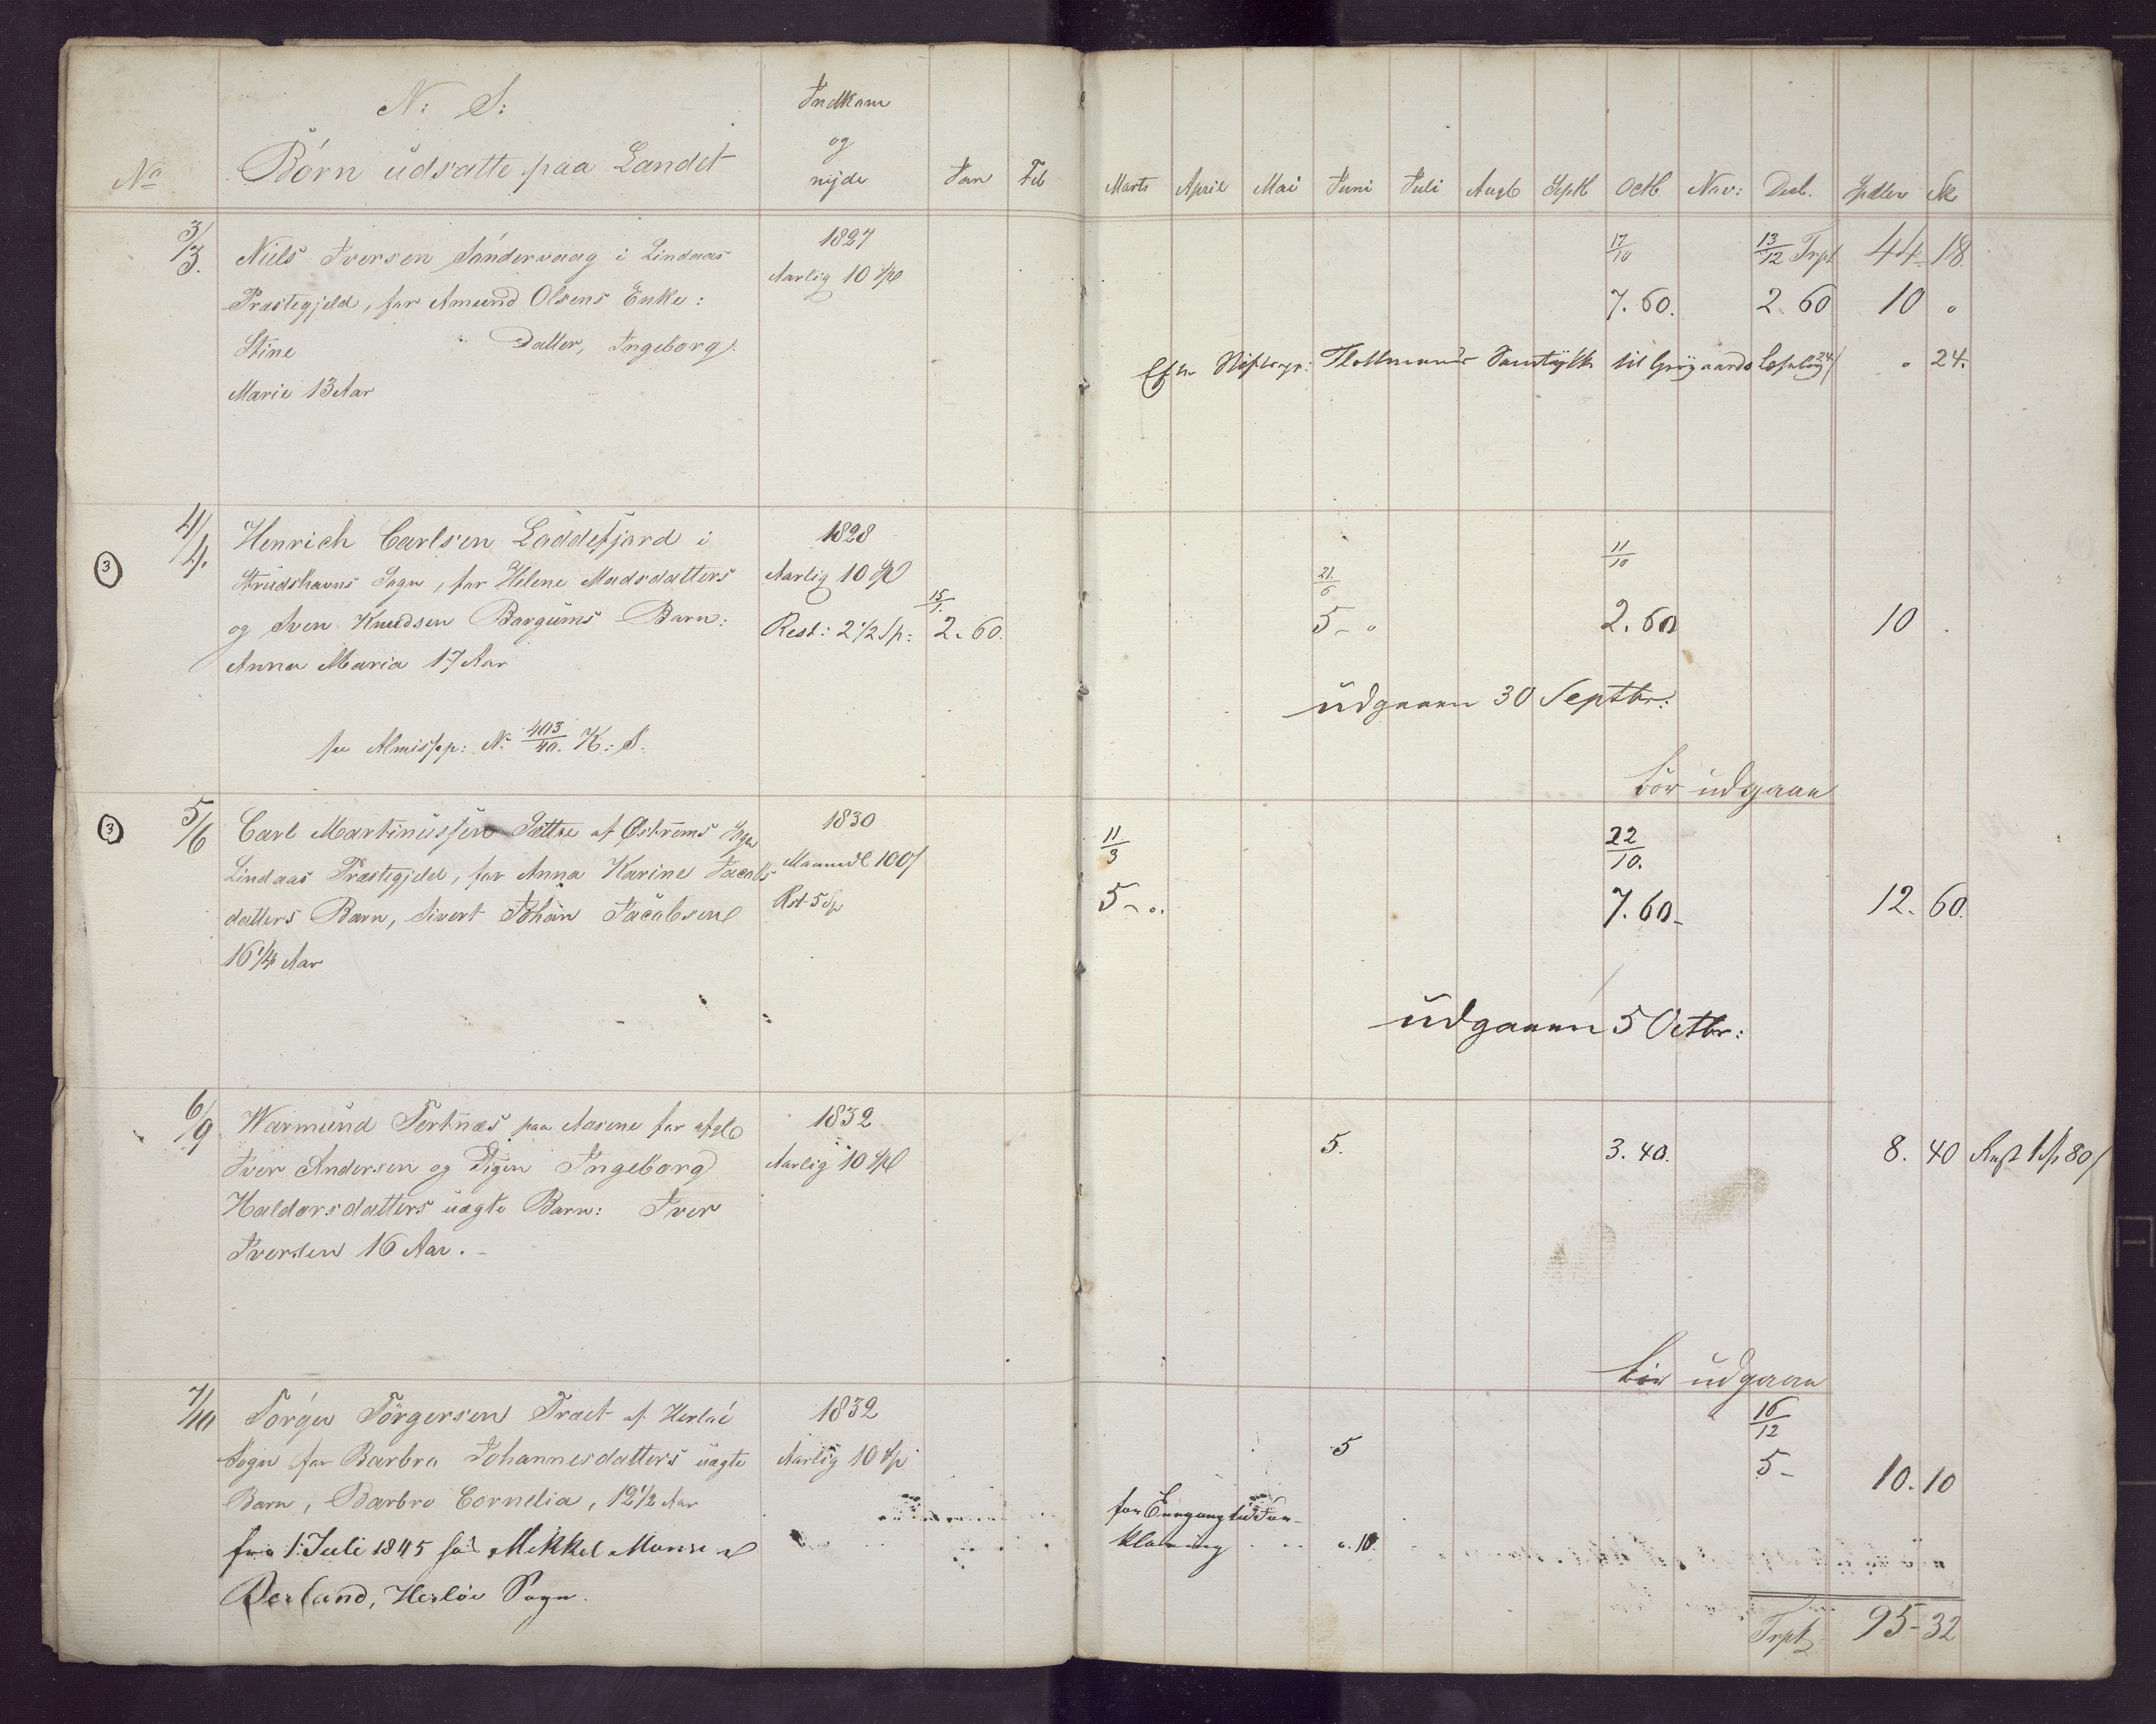 N: S:
No Börn udsatte paa Landet
Indkom og nyde
Jan Feb Marts April Mai Juni Juli Augb Septb Octb Nov: Decb. Spdler Sk
3/3. Niels Iversen Söndervaag i Lindaas
Præstegjeld, for Amund Olsens Enke:
Stine Datter, Ingeborg
Marie 13 Aar
1827
Aarlig 10 Sp
17/10 13/12 Trpt 44 18.
7. 60. 2. 60 10 "
Samtykke til 24 " 24.
3
4/4. Henrich Carlsen Loddefjord i
Strudshavns Sogn, for Helene Madsdatters
og Sven Knudsen Bargums Barn:
Anna Maria 17 Aar
se Almissp: No 403/40. K: S.
1828
Aarlig 10 Sp
Rest: 2 1/2 Sp:
15/1. 2. 60.
21./6 5 - "
11/10 2. 60 10 .
udgaaen 30 Septbr:
bör udgaae
3
5/6 Carl Martinussen Sættre af Östrems Sogn
Lindaas Præstegjeld, for Anna Karine Jacobs
datters Barn, Sivert Johan Jacobsen
16 1/4 Aar
1830
Maanedl 100 s
Rst 5 Sp
11/3 22/10.
5 - ". 7. 60 - 12. 60.
udgaaen 5 Octbr:
6/9 Warmund Tertnæs paa Aasene for afdö
Iver Andersen og Pigen Ingeborg
Haldorsdatters uægte Barn: Iver
Iversen 16 Aar. -
1832
Aarlig 10 Sp
5. 3. 40. 8. 40 Rest 1 Sp 80 s
bör udgaae
7/10 Törger Törgersen Træet af Herlöe
Sogn for Barbro Johannesdatters uægte
Barn, Barbro Cornelia, 12 1/2 Aar
fra 1. Juli 1845 hos Mikkel Monsen
Berland, Herlöe Sogn.
1832
Aarlig 10 Sp
16/12
5 5 - 10. 10
for
klædning ". 10.
Trpt 95 - 32